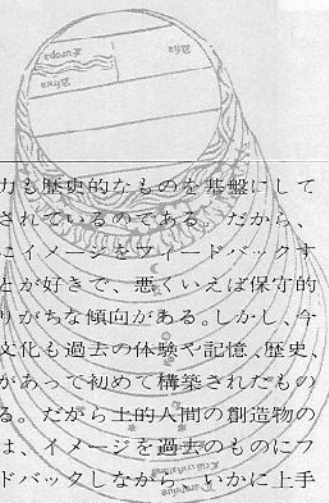 力も歴史的なものを基盤にして
されているのである。だから、
にイメージをフィードバックす
とが好きで、悪くいえば保守的
りがちな傾向がある。しかし、今
文化も過去の体験や記憶、歴史、
があって初めて構築されたもの
る。だから土的人間の創造物の
は、イメージを過去のものにフ
ドバックしながら、いかに上手